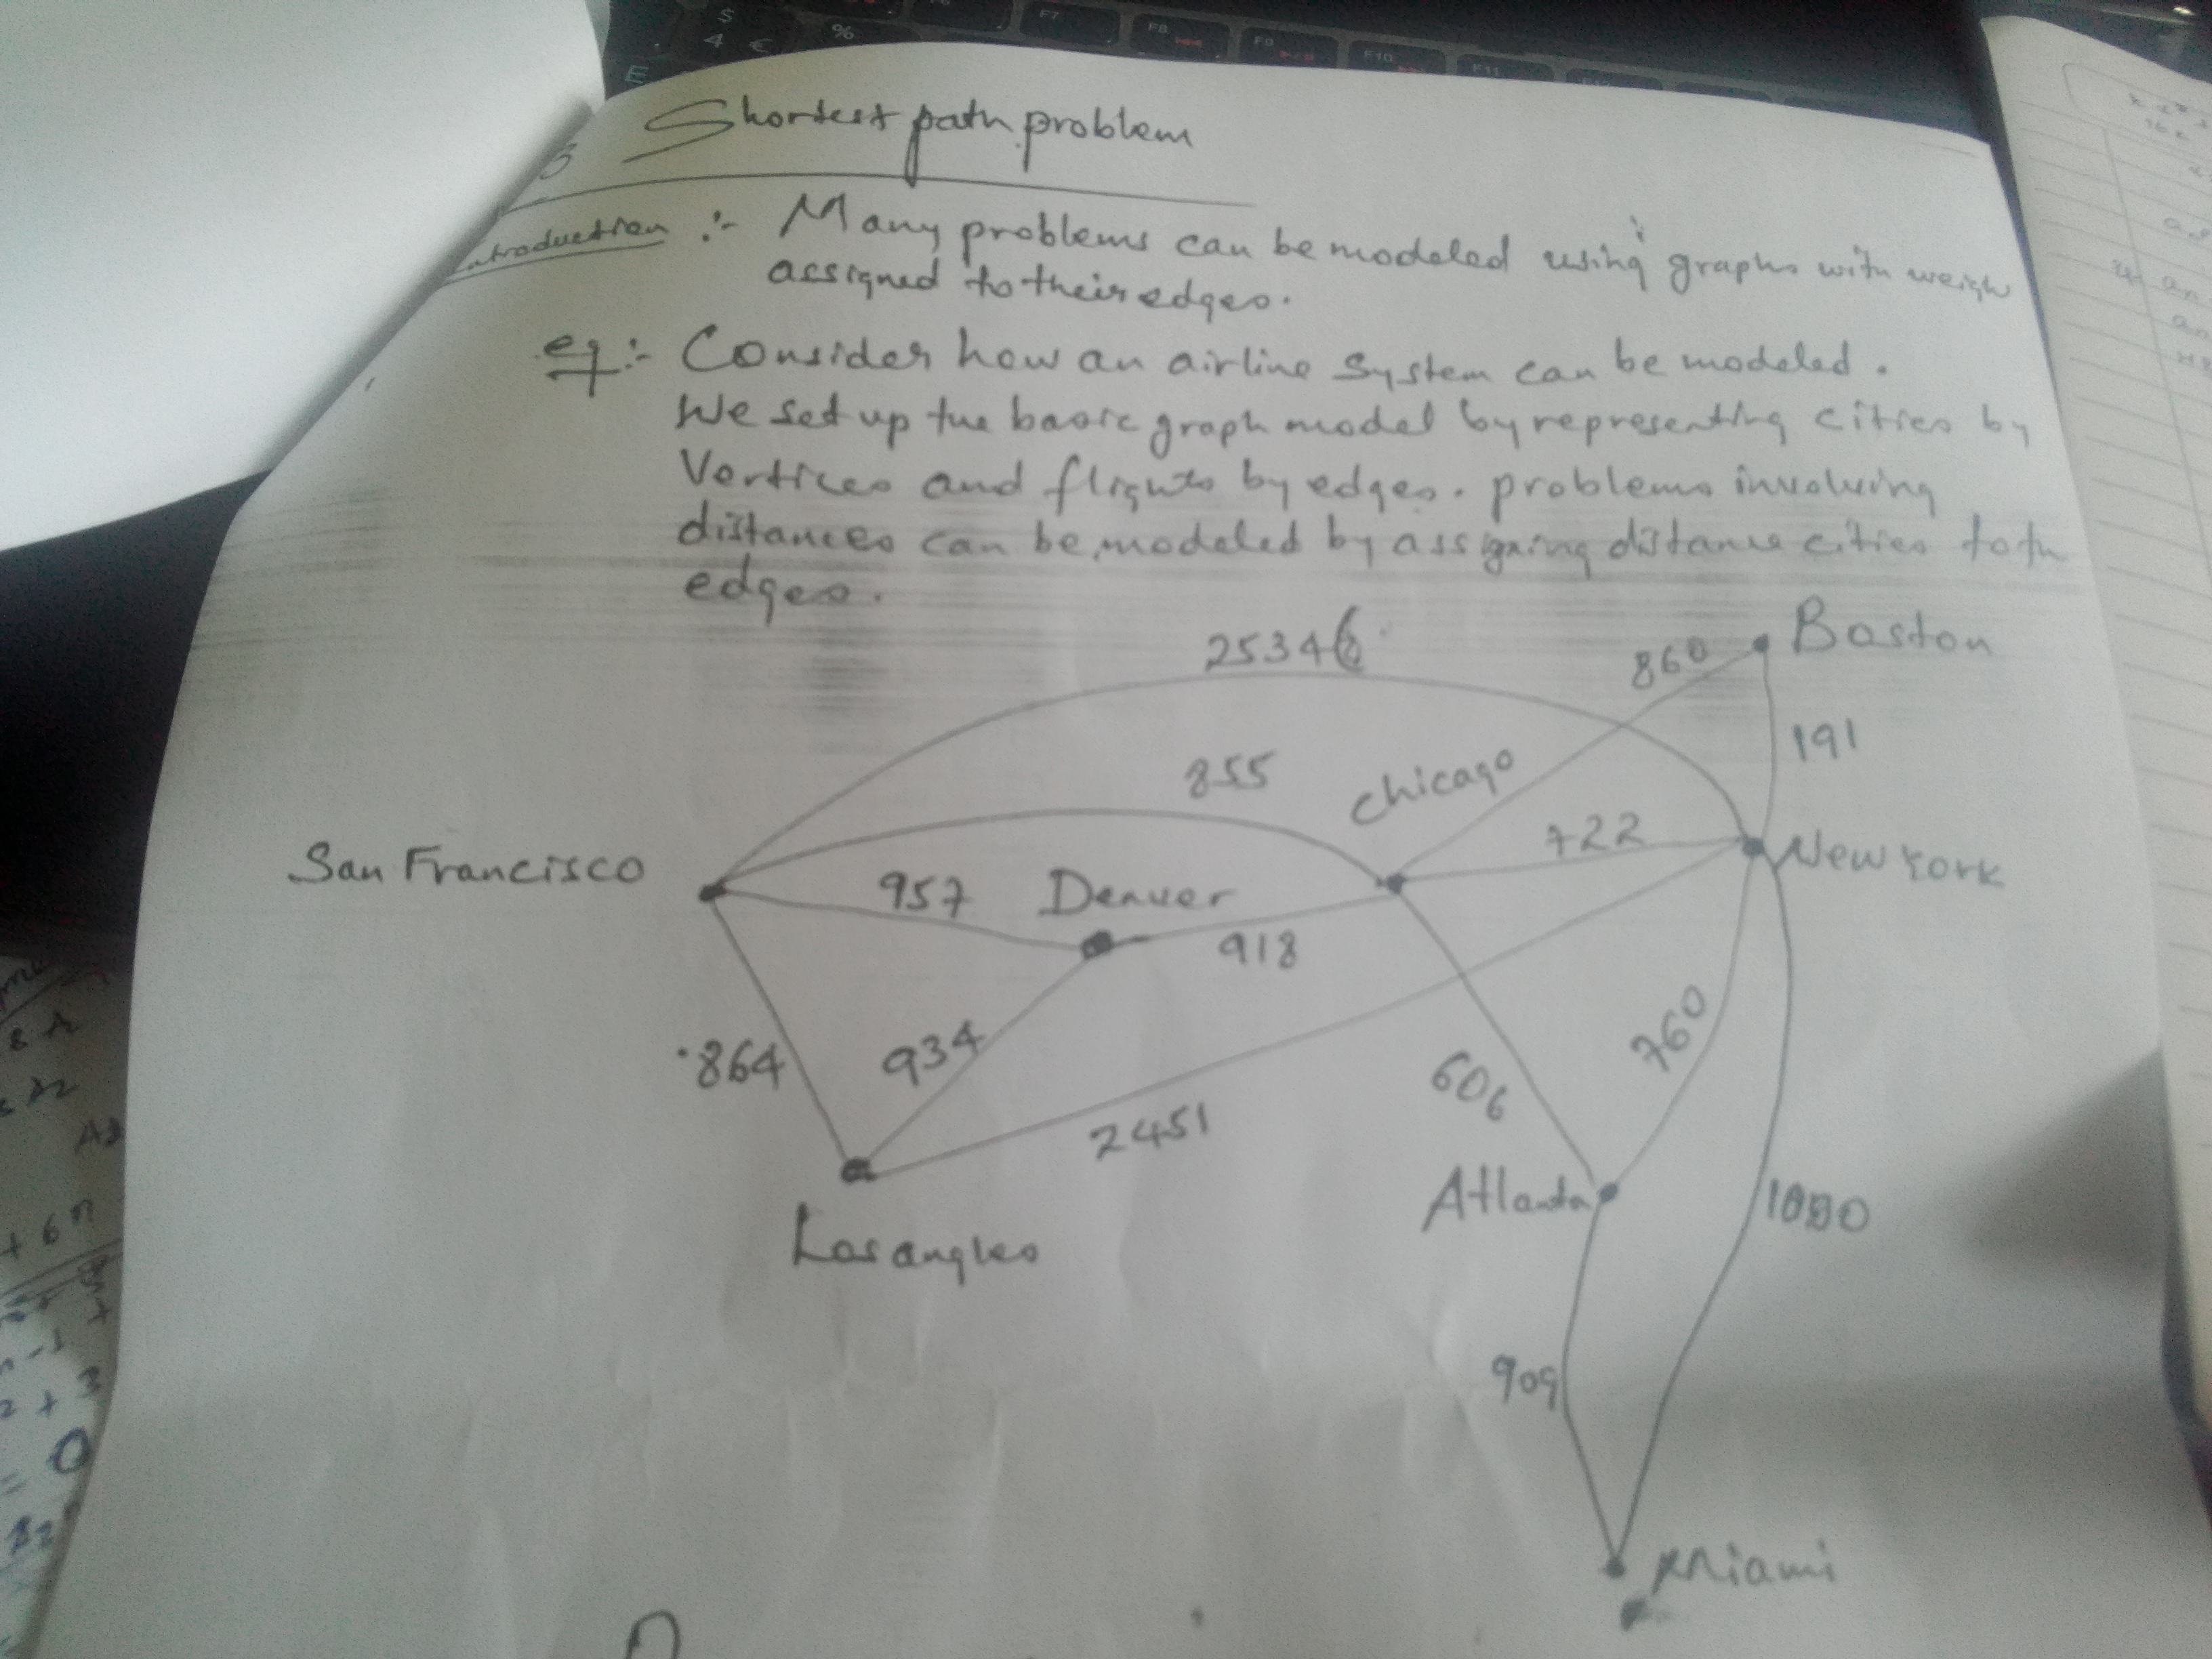 Shortest path problem
Introduction :- Many problems can be modeled using graphs with weigh
assigned to their edges.
eg:- Consider how an airline system can be modeled.
We set up the basic graph model by representing cities by
Vertices and flights by edges. problems involving
distances can be modeled by assigning distance cities to th
edges.
2534
860
Boston
191
855
chicago
722
San Francisco
957
Denver
New York
918
864
934
606
760
2451
Atlanta
Los angles
909
Miami